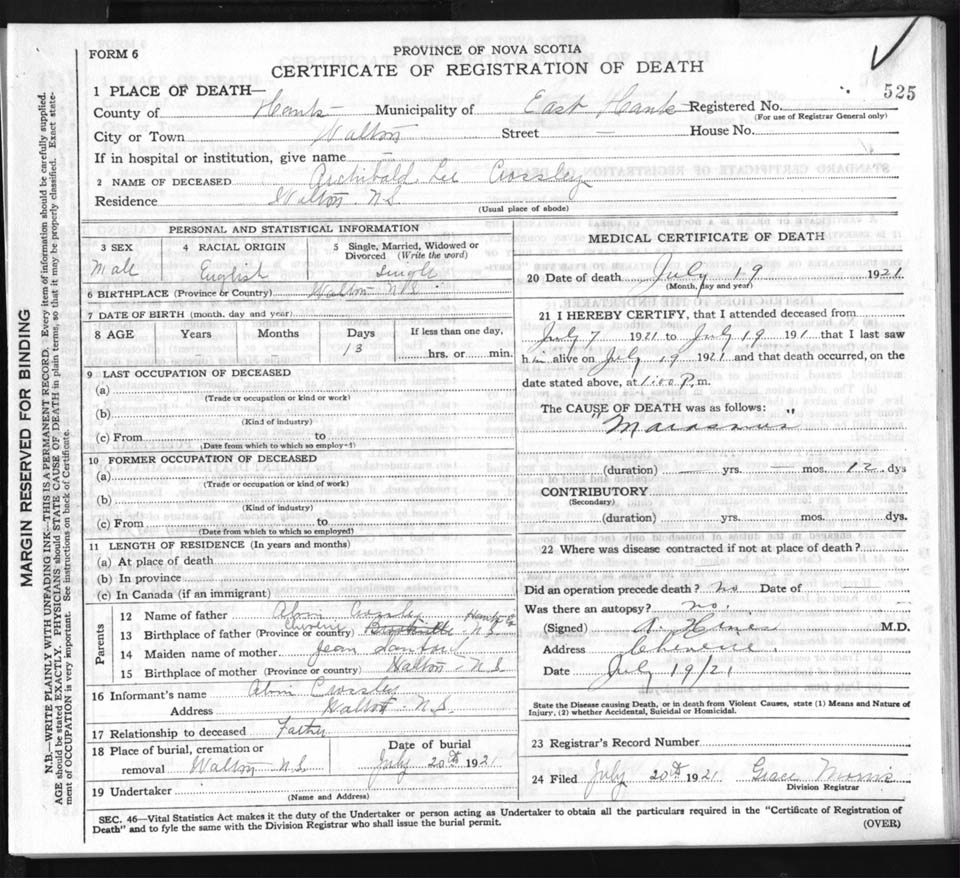 FORM 6
PROVINCE OF NOVA SCOTIA
CERTIFICATE OF REGISTRATION OF DEATH
525
1 PLACE OF DEATH—
County of Hants Municipality of East Hants Registered No.
(For use of Registrar General only)
City or Town Walton Street — House No.
If in hospital or institution, give name —
2 NAME OF DECEASED Archibald Lee Crossley
Residence Walton N.S.
(Usual place of abode)
PERSONAL AND STATISTICAL INFORMATION
3 SEX 4 RACIAL ORIGIN 5 Single, Married, Widowed or Divorced (Write the word)
Male English Single
6 BIRTHPLACE (Province or Country) Walton N.S.
7 DATE OF BIRTH (month, day and year)
8 AGE Years Months Days If less than one day,
13
hrs. or min.
9 LAST OCCUPATION OF DECEASED
(a)
(Trade or occupation or kind or work)
(b)
(Kind of industry)
(c) From to
(Date from which to which so employ-1)
10 FORMER OCCUPATION OF DECEASED
(a)
(Trade or occupation or kind of work)
(b)
(Kind of industry)
(c) From to
(Date from which to which so employed)
11 LENGTH OF RESIDENCE (In years and months)
(a) At place of death
(b) In province
(c) In Canada (if an immigrant)
Parents
12 Name of father Alvin Crossley
Hants Co
13 Birthplace of father (Province or country) N.S.
14 Maiden name of mother Jean
15 Birthplace of mother (Province or country) Walton N.S
16 Informant's name Alvin Crossley
Address Walton N.S.
17 Relationship to deceased Father
18 Place of burial, cremation or removal Walton N.S
Date of burial
July 20th 1921
19 Undertaker
(Name and Address)
MEDICAL CERTIFICATE OF DEATH
20 Date of death July 19 1921
(Month, day and year)
21 I HEREBY CERTIFY, that I attended deceased from
July 7 1921 to July 19 191 that I last saw
him alive on July 19 1921 and that death occurred, on the
date stated above, at 1.00 P.m.
The CAUSE OF DEATH was as follows:
"Marasmus"
(duration) — yrs. — mos. 12 dys
CONTRIBUTORY
(Secondary)
(duration) yrs. mos. dys.
22 Where was disease contracted if not at place of death?
Did an operation precede death? No Date of
Was there an autopsy? no.
(Signed) A. Hines M.D.
Address Cheverie
Date July 19/21
State the Disease causing Death, or in death from Violent Causes, state (1) Means and Nature of
Injury, (2) whether Accidental, Suicidal or Homicidal.
23 Registrar's Record Number
24 Filed July 20th 1921 Grace Morris
Division Registrar
SEC. 46—Vital Statistics Act makes it the duty of the Undertaker or person acting as Undertaker to obtain all the particulars required in the "Certificate of Registration of
Death" and to fyle the same with the Division Registrar who shall issue the burial permit.
(OVER)
MARGIN RESERVED FOR BINDING
N.B.—WRITE PLAINLY WITH UNFADING INK—THIS IS A PERMANENT RECORD. Every item of information should be carefully supplied.
AGE should be stated EXACTLY. PHYSICIANS should STATE CAUSE OF DEATH in plain terms, so that it may be properly classified. Exact state-
ment of OCCUPATION is very important. See instructions on back of Certificate.